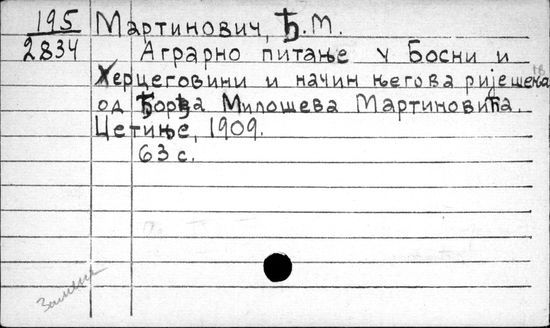 195 Мартиновић, Ђ. М.
2834 Аграрно питање у Босни и
Херцеговини и начин његова ријешења
од Ђорђа Милошева Мартиновића.
Цетиње, 1909.
63 с.